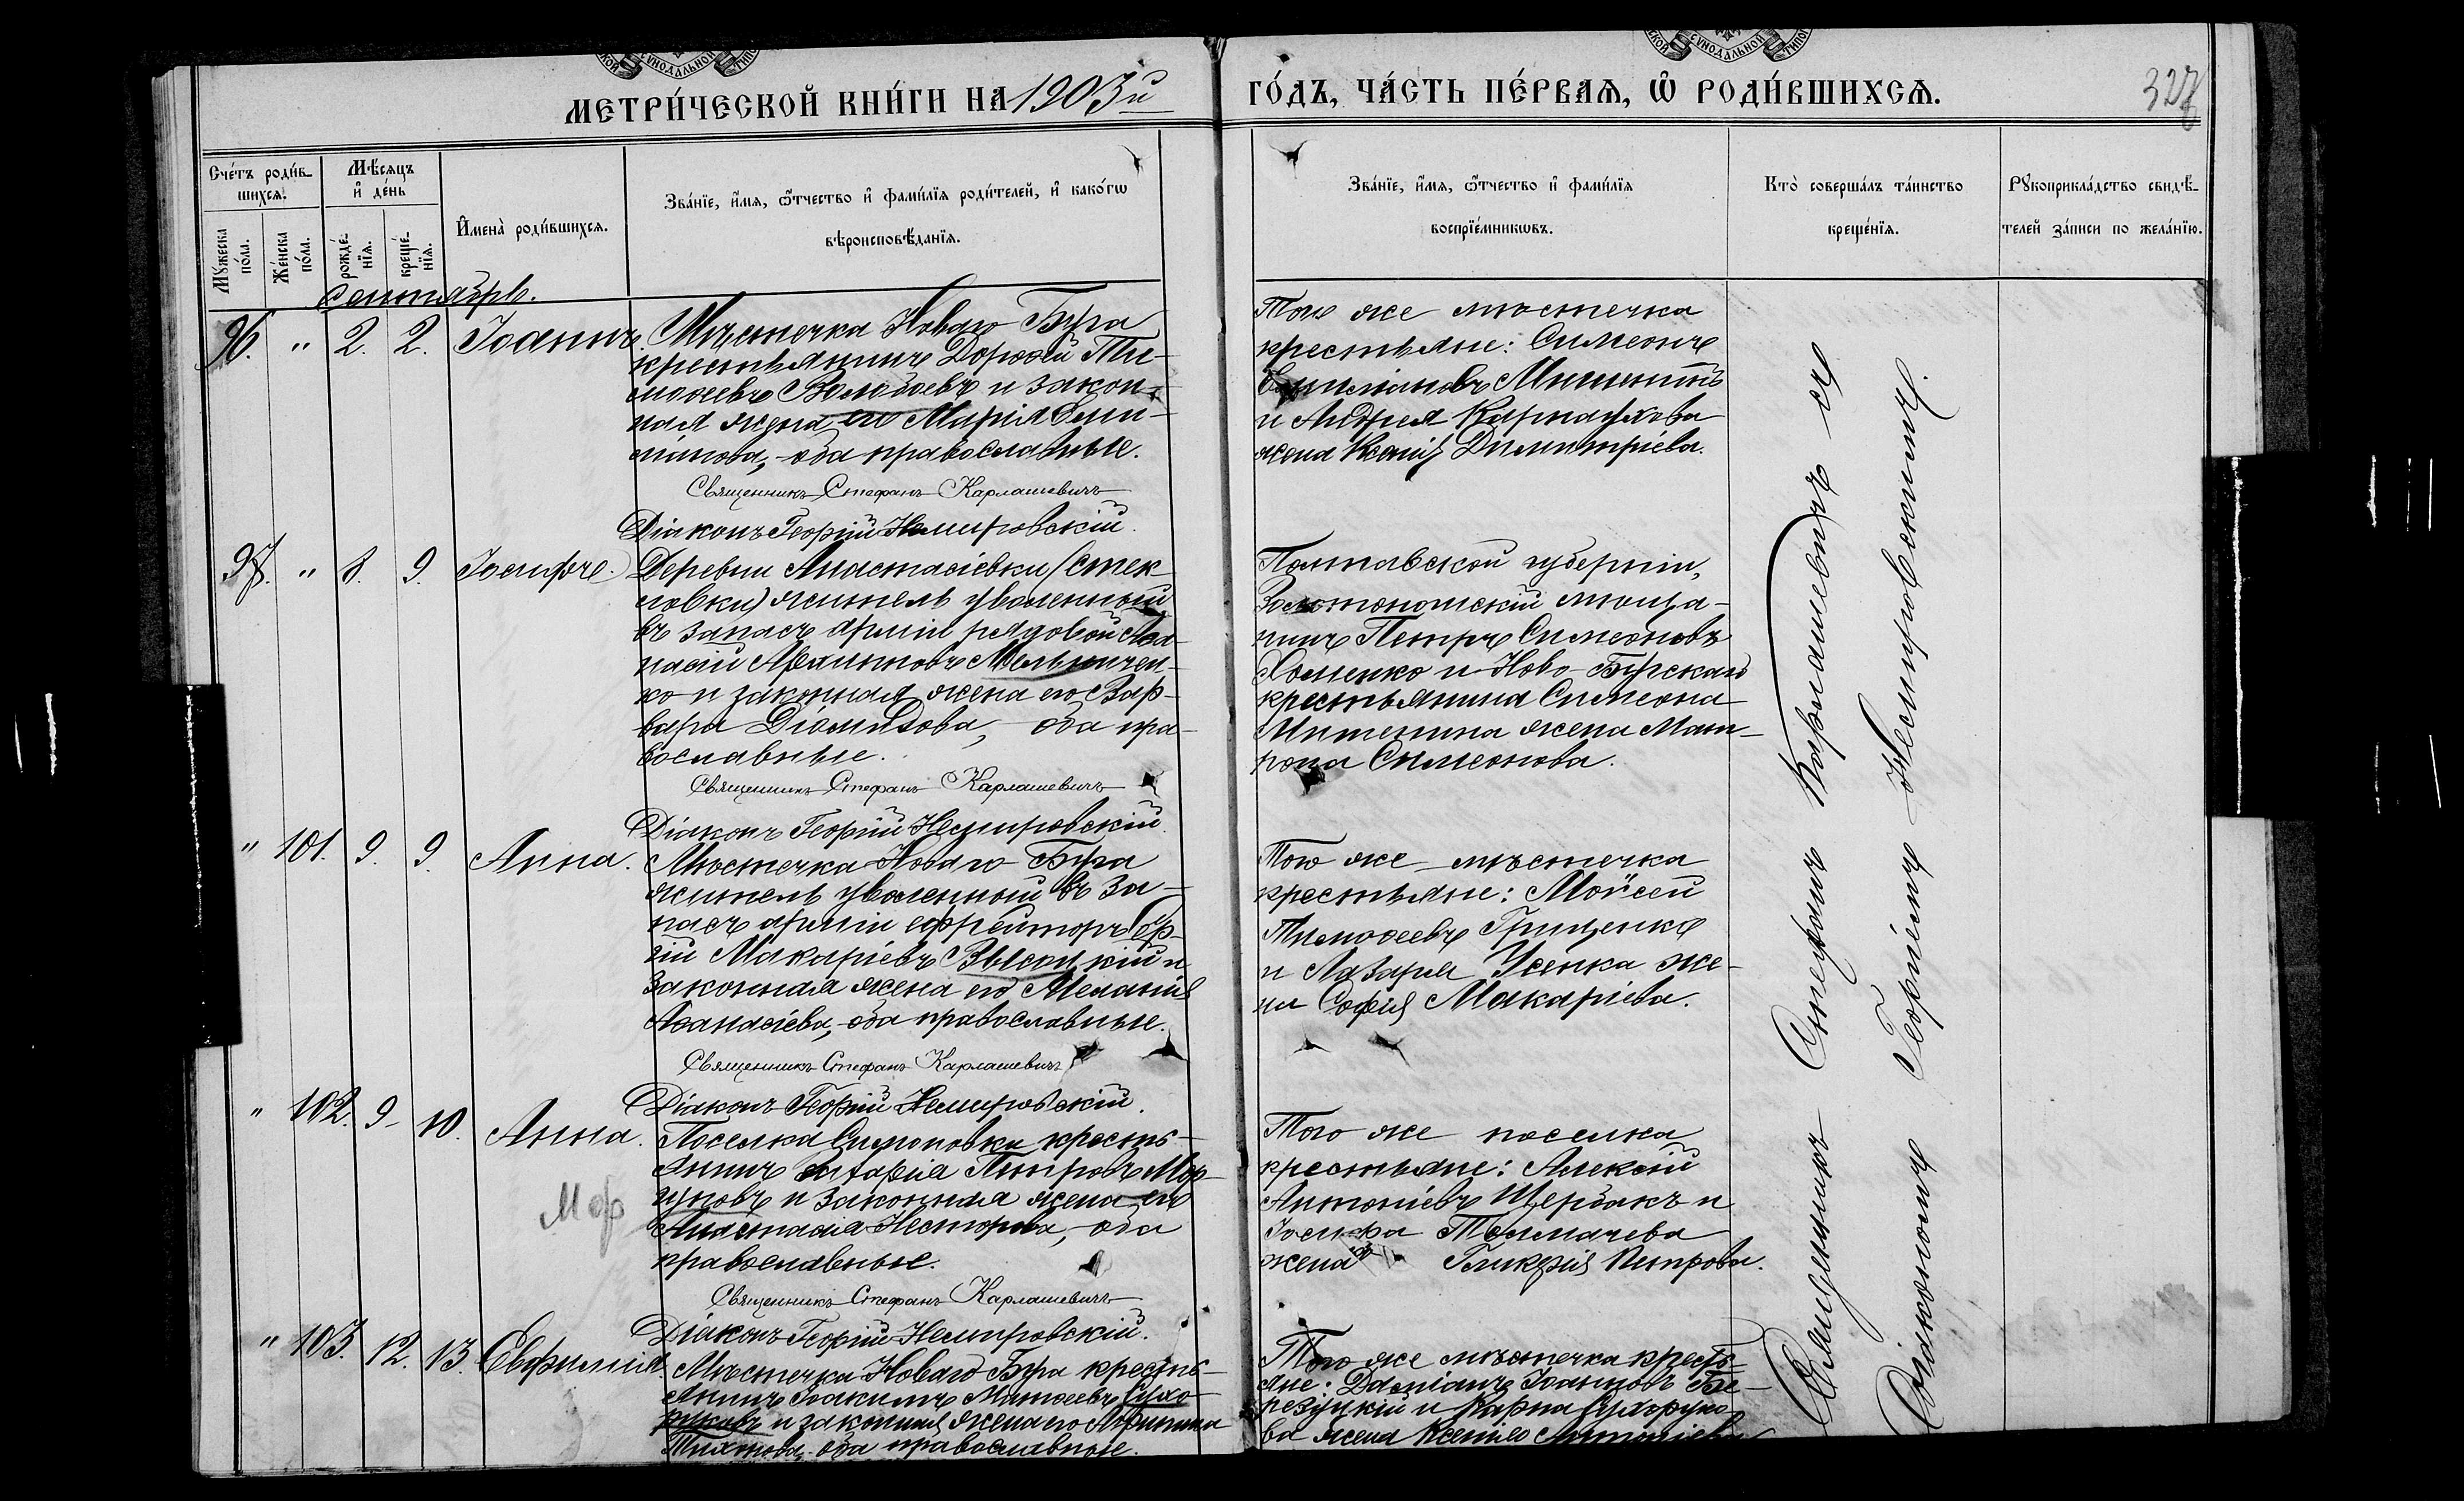 МЕТРИ́ЧЕСКОЙ КНИ́ГИ НА 1903й
ГО́ДЪ, ЧА́СТЬ ПЕ́РВАѦ, Ѡ҆ РОДИ́ВШИХСѦ.
327
Сче́тъ роди́в-
шихсѧ.
Мꙋ́жеска по́ла.
Же́нска по́ла.
Мѣ́сѧцъ
и҆ де́нь
рожде́-
нїѧ.
креще́-
нїѧ.
И҆мена̀ роди́вшихсѧ.
Зва́нїе, и҆́мѧ, ѻ҆́тчество и҆ фами́лїѧ роди́телей, и҆ како́гѡ
вѣроисповѣ́данїѧ.
Зва́нїе, и҆́мѧ, ѻ҆́тчество и҆ фами́лїѧ
воспрїе́мникѡвъ.
Кто̀ соверша́лъ та́инство
креще́нїѧ.
Рꙋкоприкла́дство свидѣ́-
телей за́писи по жела́нїю.
Сентябрь.
96. " 2. 2. Іоаннъ.
Мѣстечка Новаго Буга
крестьянинъ Дороѳей Ти-
моѳеевъ Волобоевъ и закон-
ная жена его Марія
оба православные.
Священникъ Стефанъ Карлашевичъ
Діаконъ Георгій Немировскій.
Того же мѣстечка
крестьяне: Симеонъ
Мишенинъ
и Андрея Карнаухова
жена Ксенія Димитріева.
97. " 8. 9. Іосифъ.
Деревни Анастасіевки (Стек-
ловки) житель уволенный
въ запасъ арміи рядовой Аѳа-
насій Мельничен-
ко и законная жена его Вар-
вара Діомидова, оба пра-
вославные.
Священникъ Стефанъ Карлашевичъ
Діаконъ Георгій Немировскій.
Полтавской губерніи,
Золотоношскій мѣща-
нинъ Петръ Симеоновъ
Хоменко и Ново-Бугскаго
крестьянина Симеона
Мишенина жена Мат-
рона Симеонова.
" 101. 9. 9. Анна.
Мѣстечка Новаго Буга
житель уволенный въ за-
пасъ арміи ефрейторъ Сер-
гій Макаріевъ Высоцкій и
законная жена его Меланія
Аѳанасіева, оба православные.
Священникъ Стефанъ Карлашевичъ
Діаконъ Георгій Немировскій.
Того же мѣстечка
крестьяне: Моѵсей
Тимоѳеевъ Грищенко
и Лазаря Усенка же-
на Софія Макаріева.
" 102. 9. 10. Анна.
Поселка Симоновки кресть-
янинъ Петровъ Мор-
гуновъ и законная жена его
Анастасія Несторова, оба
православные.
Священникъ Стефанъ Карлашевичъ
Діаконъ Георгій Немировскій.
Того же поселка
крестьяне: Алексій
Антоніевъ Щербакъ и
Іосифа Толмачева
жена Гликерія Петрова.
" 103. 12. 13. Евфимія.
Мѣстечка Новаго Буга кресть-
янинъ Іоакимъ Сухо-
руковъ и законная жена его
Тихонова, оба православные.
Того же мѣстечка кресть-
яне: Даміанъ Іоанновъ Бе-
резуцкій и Карпа Сухоруко-
ва жена Ксенія Антоніева
Священникъ Стефанъ Карлашевичъ съ
Діакономъ Георгіемъ Немировскимъ.